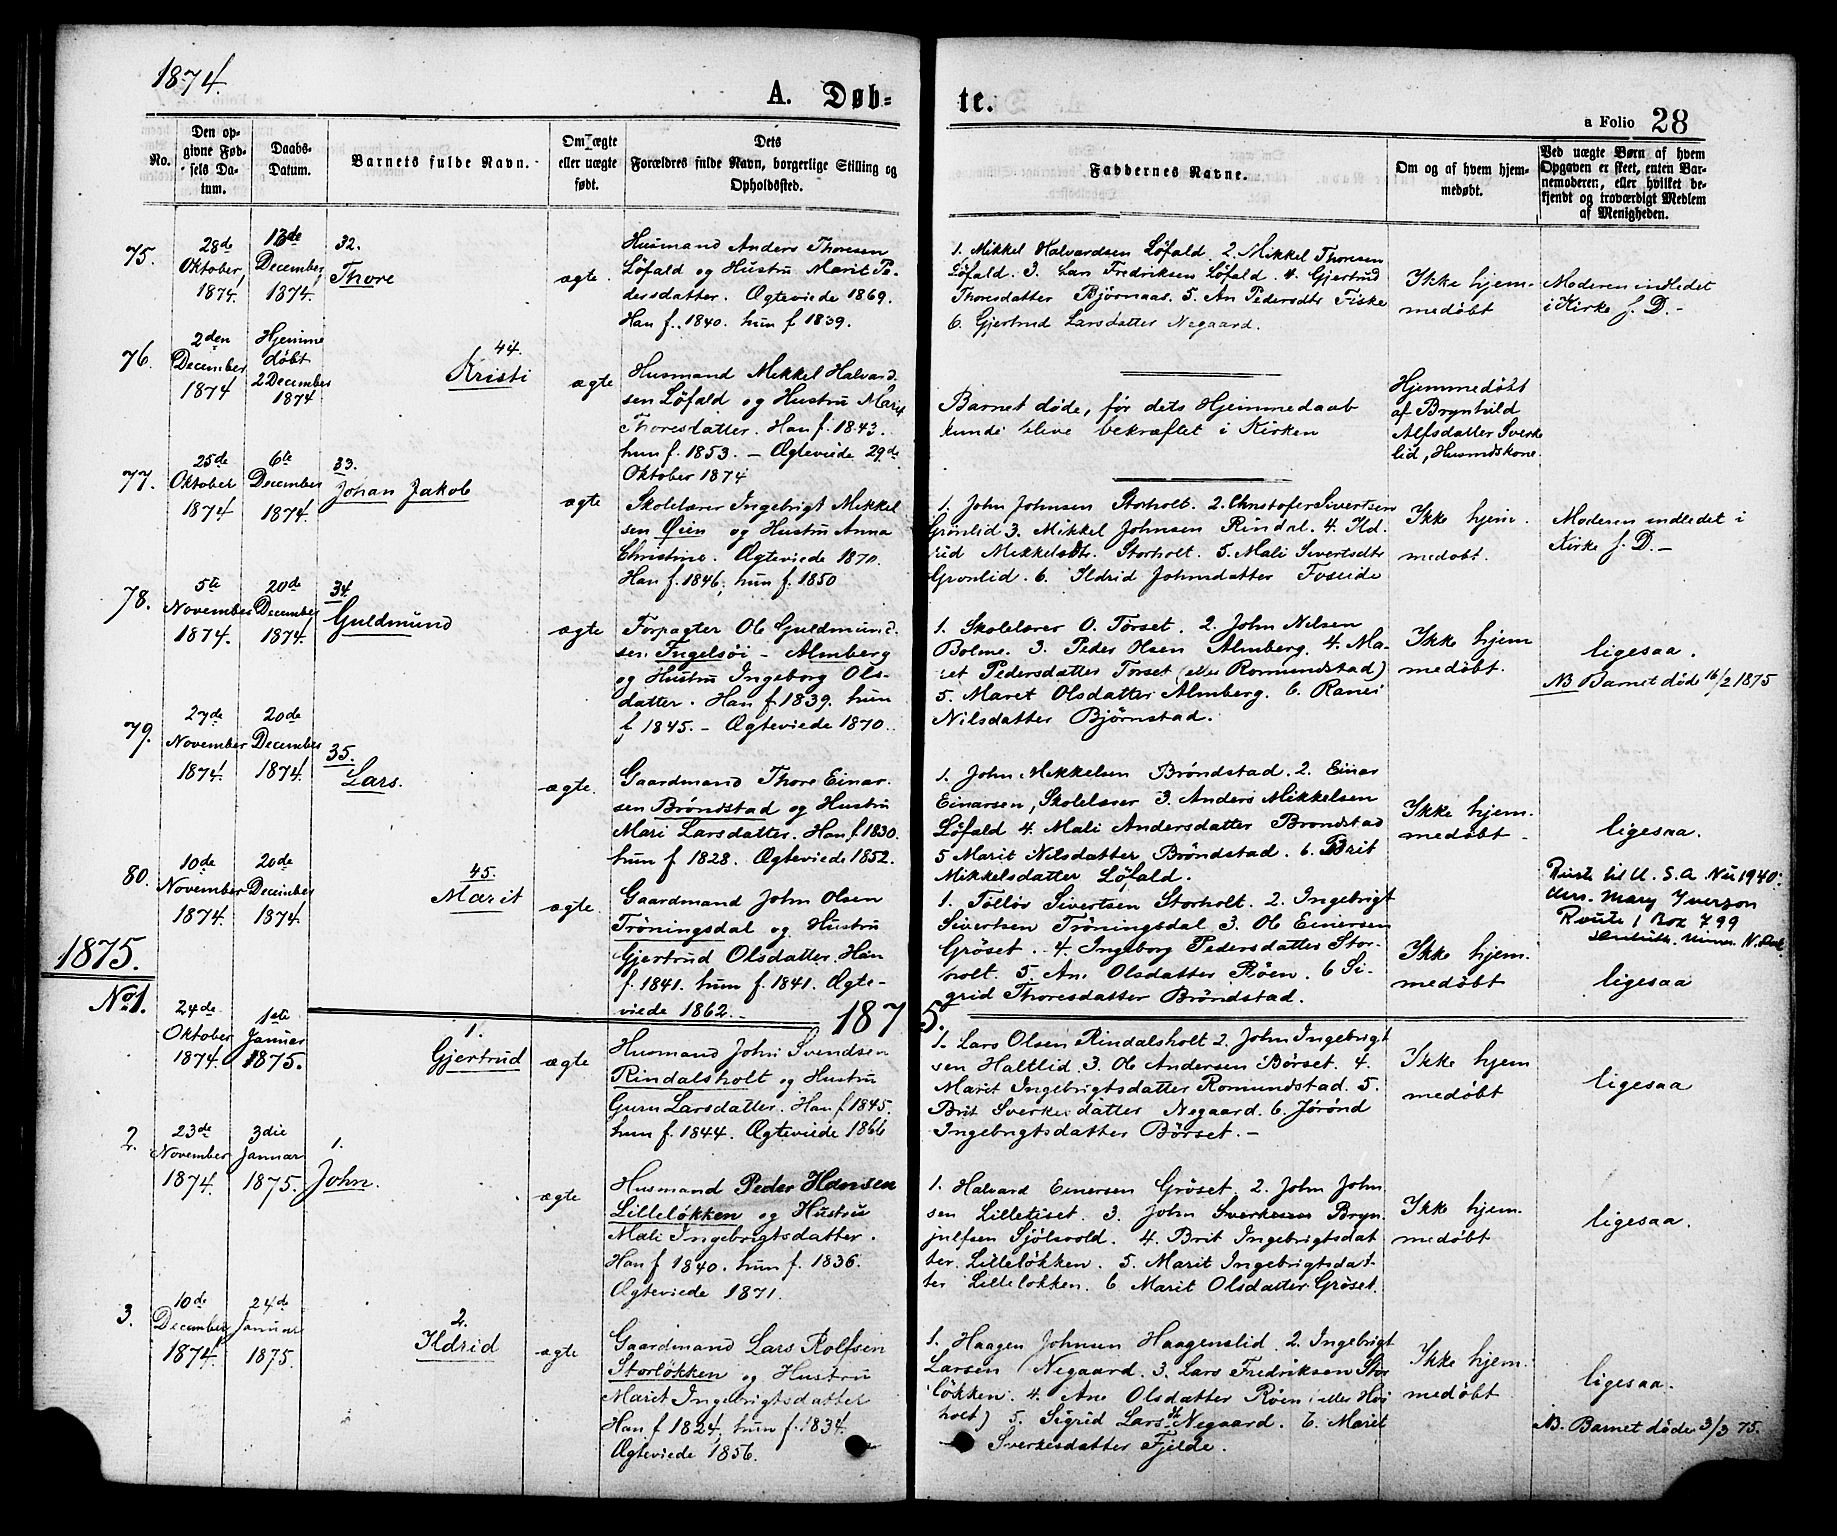 1874.
A. Døb-
te.
a Folio 28
No.
Den op-
givne Fød-
sels Da-
tum.
Daabs-
Datum.
Barnets fulde Navn.
Om ægte
eller uægte
født.
Dets
Forældres fulde Navn, borgerlige Stilling og
Opholdssted.
Faddernes Navne.
Om og af hvem hjem-
medøbt.
Ved uægte Børn af hvem
Opgaven er skeet, enten Bar-
nemoderen, eller hvilket be-
kjendt og troværdigt Medlem
af Menigheden.
75.
28de
Oktober
1874.
13de
December
1874.
32.
Thore
ægte.
Husmand Anders Thoresen
Løfald og Hustru Marit Pe-
dersdatter. Ægteviede 1869.
Han f. 1840. hun f 1839.
1. Mikkel Halvardsen Løfald. 2. Mikkel Thoresen
Løfald. 3. Lars Fredriksen Løfald. 4. Gjertrud
Thoresdatter Bjørnaas. 5. An Pedersdtr Fiske
6. Gjertrud Larsdatter Negaard.
Ikke hjem-
medøbt
Moderen indledet
i Kirke f. D.-
76.
2den
December
1874
Hjemme
døbt
2 December
1874
44.
Kristi
ægte
Husmand Mikkel Halvard
sen Løfald og Hustru Marit
Thoresdatter. Han f. 1843.
hun f. 1853. - Ægteviede 29de
Oktober 1874
Barnet døde, før dets Hjemmedaab
kunde blive bekræftet i Kirken
Hjemmedøbt
af Brynhild
Alfsdatter Sverke
lid, Husmdskone.
77.
25de
Oktober
1874
6te
December
1874.
33.
Johan Jakob
ægte
Skolelærer Ingebrigt Mikkel
sen Øien og Hustru Anna
Christine. Ægteviede 1870.
Han f. 1846; hun f. 1850
1. John Johnsen Storholt. 2. Christofer Sivertsen
Grønlid 3. Mikkel Johnsen Rindal. 4. Ild-
rid Mikkelsdtr. Storholt. 5. Mali Sivertsdtr
Grønlid. 6. Ildrid Johnsdatter Foseide
Ikke hjem.
medøbt.
Moderen indledet i
Kirke f. D.-
78.
5te
November
1874.
20de
December
1874.
34.
Guldmund
ægte
Forpagter Ol Guldmund.
sen Ingelsøi - Almberg
og Hustru Ingeborg Ols-
datter. Han f. 1839. hun
f. 1845. - Ægteviede 1870.
1. Skolelærer O. Tørset. 2. John Nilsen
Bolme. 3. Peder Olsen Almberg. 4. Ma-
ret Pedersdatter Tørset (eller Romundstad)
5. Maret Olsdatter Almberg. 6. Ranei
Nilsdatter Bjørnstad.
Ikke hjem
medøbt.
ligesaa.
NB Barnet døde 16/2 1875
79.
27de
November
1874.
20de
December
1874.
35.
Lars.
ægte.
Gaardmand Thore Einar-
sen Brøndstad og Hustru
Mari Larsdatter. Han f. 1830.
hun f 1828. Ægteviede 1852.
1. John Mikkelsen Brøndstad. 2. Einar
Einarsen, Skolelærer 3. Anders Mikkelsen
Løfald 4. Mali Andersdatter Brøndstad
5 Marit Nilsdatter Brøndstad. 6. Brit
Mikkelsdatter Løfald.
Ikke hjem.
medøbt.
ligesaa.
80.
10de
November
1874.
20de
December
1874.
45.
Marit
ægte.
Gaardmand John Olsen
Trøningsdal og Hustru
Gjertrud Olsdatter. Han
f. 1841. hun f. 1841. Ægte-
viede 1862.-
1. Følløv Sivertsen Storholt. 2. Ingebrigt
Sivertsen Trøningsdal 3. Ol Einersen
Grøset. 4. Ingeborg Pedersdatter Stor-
holt. 5. An Olsdatter Røen. 6 Si-
grid Thoresdatter Brøndstad.
Ikke hjem.
medøbt
Reiste til U. S. A. Nu 1940:
Mrs. Mary Iverson
Route 1 Box 799
ligesaa
1875.
1875.
No 1.
24de
Oktober
1874.
1ste
Januar
1875.
1.
Gjertrud
ægte
Husmand John Svendsen
Rindalsholt og Hustru
Guru Larsdatter. Han f 1845.
hun f. 1844. Ægteviede 1866
1. Lars Olsen Rindalsholt 2. John Ingebrigt
sen Haltlid. 3. Ol Andersen Børset. 4.
Marit Ingebrigtsdatter Romundstad. 5.
Brit Sverkesdatter Negaard. 6. Jørønd
Ingebrigtsdatter Børset.-
Ikke hjem
medøbt
ligesaa
2.
23de
November
1874.
3die
Januar
1875.
1.
John.
ægte
Husmand Peder Hansen
Lilleløkken og Hustru
Mali Ingebrigtsdatter.
Han f 1840. hun f. 1836.
Ægteviede 1871.
1. Halvard Einersen Grøset. 2. John John
sen Lilletiset. 3. John Sverkesen Bryn.
julfsen Sjølsvold. 4. Brit Ingebrigtsdat
ter Lilleløkken. 5. Marit Ingebrigtsdat-
ter Lilleløkken. 6 Marit Olsdatter Grøset.
Ikke hjem.
medøbt
ligesaa.
3.
10de
December
1874.
24de
Januar
1875.
2.
Ildrid
ægte
Gaardmand Lars Rolfsen
Storløkken og Hustru
Marit Ingebrigtsdatter
Han f 1824, hun f. 1834.
Ægteviede 1856.
1. Haagen Johnsen Haagenslid. 2. Ingebrigt
Larsen Negaard. 3. Lars Fredriksen Stor
løkken. 4. Ane Olsdatter Røen (eller Høi
holt) 5. Sigrid Larsdtr Negaard. 6. Marit
Sverkesdatter Fjelde.
Ikke hjem.
medøbt
ligesaa.
NB. Barnet døde 3/3 75.